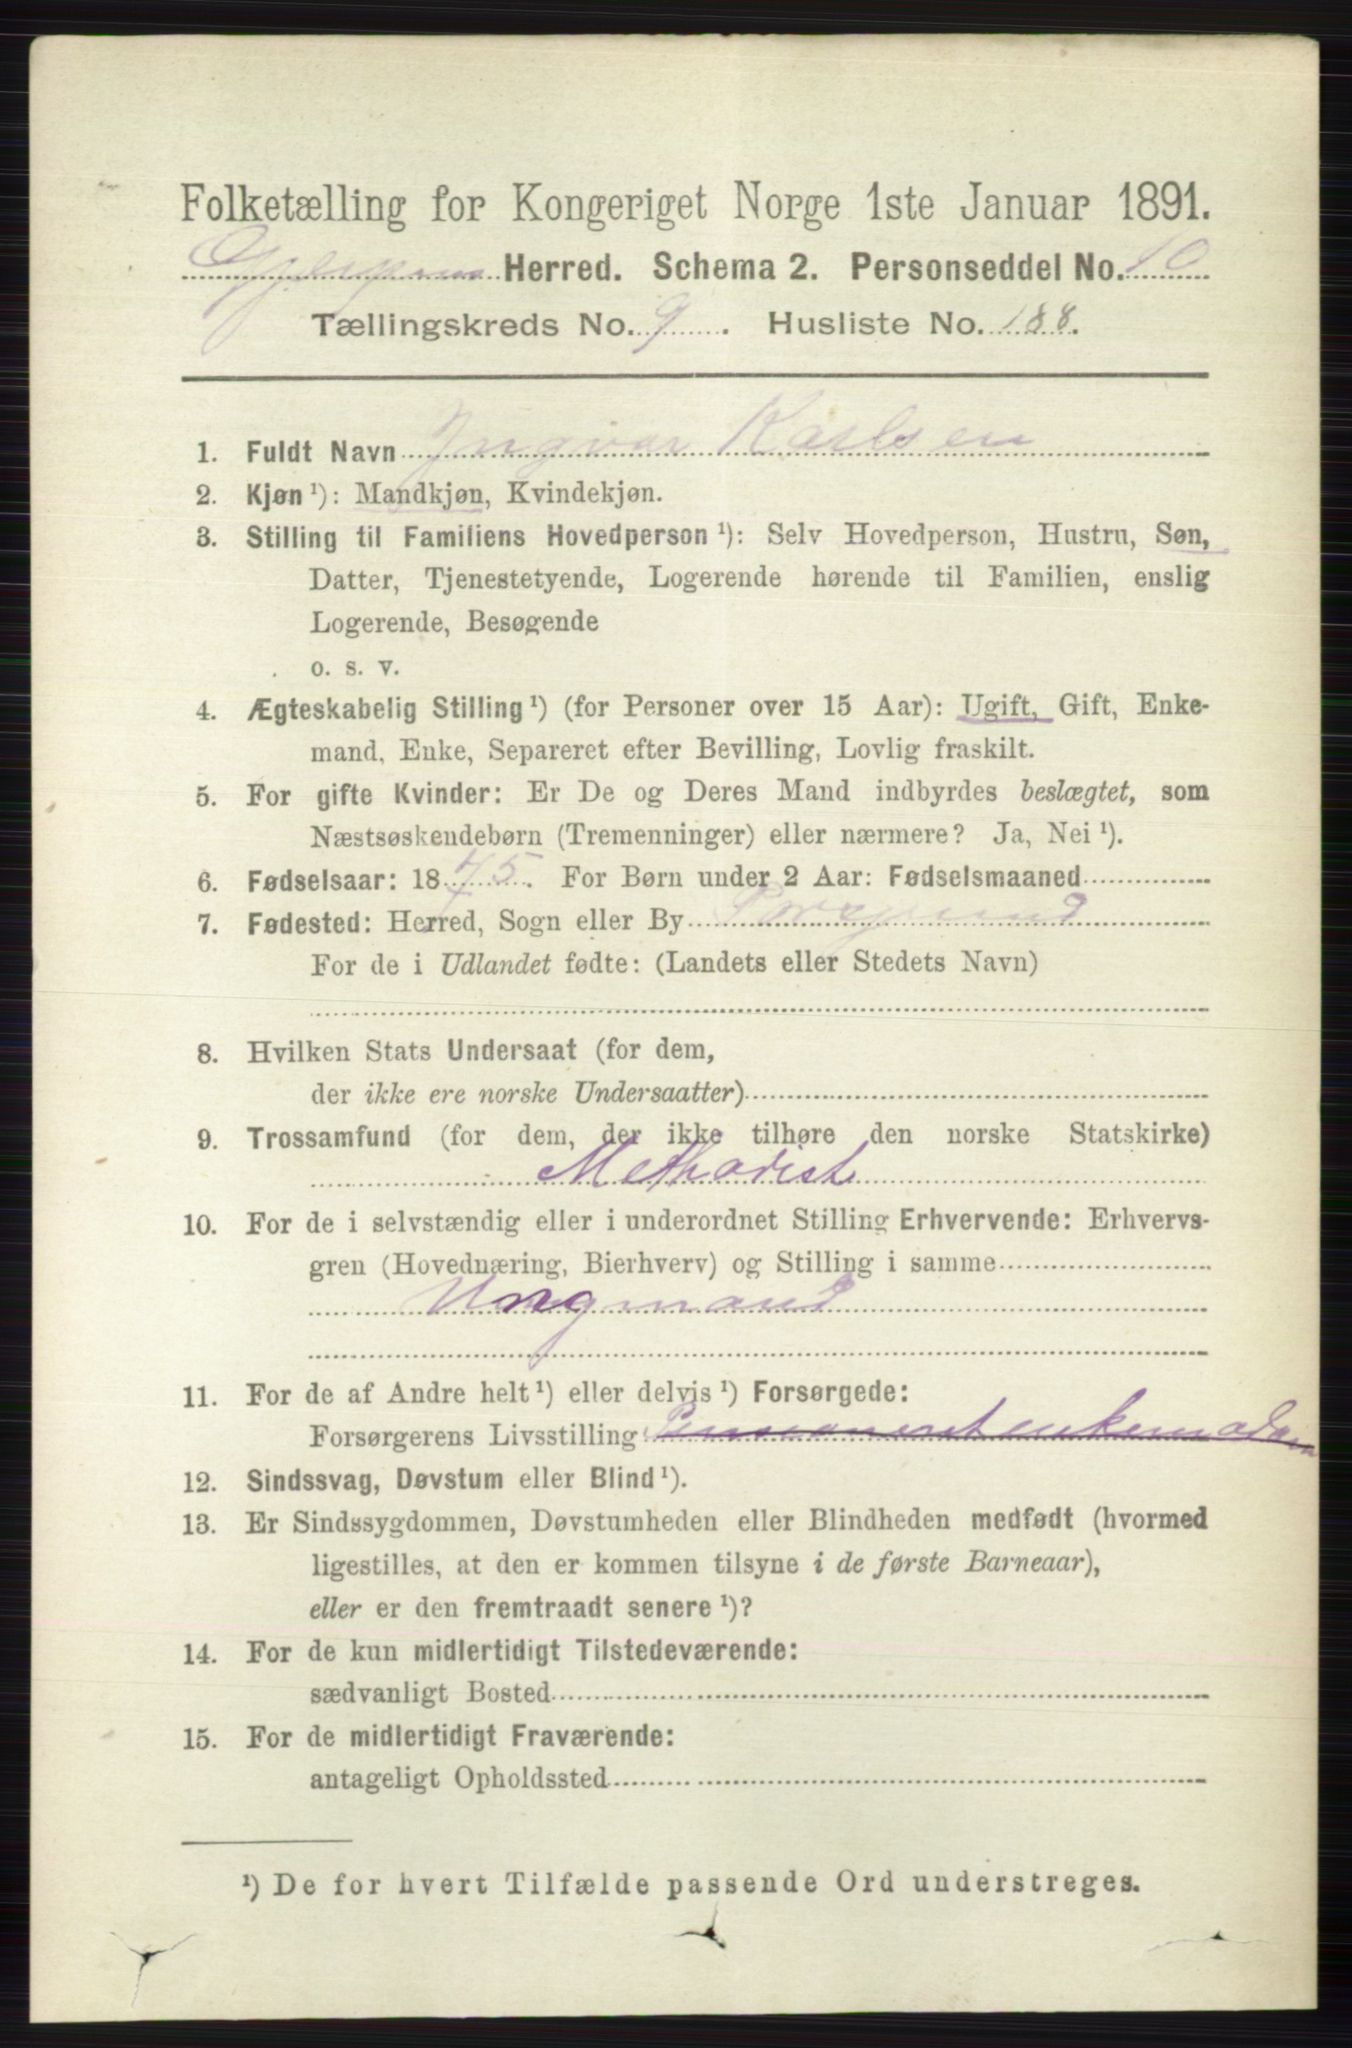 Folketælling for Kongeriget Norge 1ste Januar 1891.
Gjerpens Herred. Schema 2. Personseddel No. 10
Tællingskreds No. 9. Husliste No. 188.
1. Fuldt Navn Yngvar Karlsen
2. Kjøn ¹): Mandkjøn, Kvindekjøn.
3. Stilling til Familiens Hovedperson ¹): Selv Hovedperson, Hustru, Søn,
Datter, Tjenestetyende, Logerende hørende til Familien, enslig
Logerende, Besøgende
o. s. v.
4. Ægteskabelig Stilling ¹) (for Personer over 15 Aar): Ugift, Gift, Enke-
mand, Enke, Separeret efter Bevilling, Lovlig fraskilt.
5. For gifte Kvinder: Er De og Deres Mand indbyrdes beslægtet, som
Næstsøskendebørn (Tremenninger) eller nærmere? Ja, Nei ¹).
6. Fødselsaar: 1875. For Børn under 2 Aar: Fødselsmaaned
7. Fødested: Herred, Sogn eller By Porsgrund
For de i Udlandet fødte: (Landets eller Stedets Navn)
8. Hvilken Stats Undersaat (for dem,
der ikke ere norske Undersaatter)
9. Trossamfund (for dem, der ikke tilhøre den norske Statskirke)
Methodist
10. For de i selvstændig eller i underordnet Stilling Erhvervende: Erhvervs-
gren (Hovednæring, Bierhverv) og Stilling i samme
Ungmand
11. For de af Andre helt ¹) eller delvis ¹) Forsørgede:
Forsørgerens Livsstilling Pensioneret enkemadam
12. Sindssvag, Døvstum eller Blind ¹).
13. Er Sindssygdommen, Døvstumheden eller Blindheden medfødt (hvormed
ligestilles, at den er kommen tilsyne i de første Barneaar),
eller er den fremtraadt senere ¹)?
14. For de kun midlertidigt Tilstedeværende:
sædvanligt Bosted
15. For de midlertidigt Fraværende:
antageligt Opholdssted
¹) De for hvert Tilfælde passende Ord understreges.